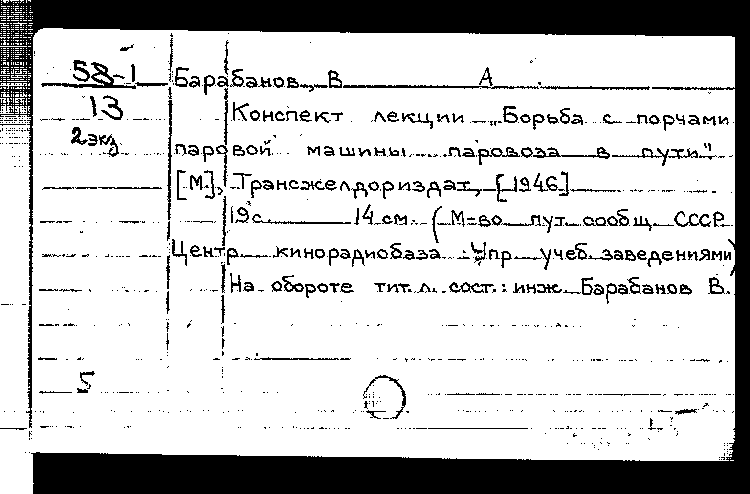 58-1 Барабанов, В А.
13 Конспект лекции „Борьба с порчами
2 экз паровой машины паровоза в пути".
[М.], Трансжелдориздат, [1946]
19 с. 14 см. (М=во пут. сообщ. СССР.
Центр. кинорадиобаза Упр. учеб. заведениями)
На обороте тит. л. сост.: инж. Барабанов В.
5